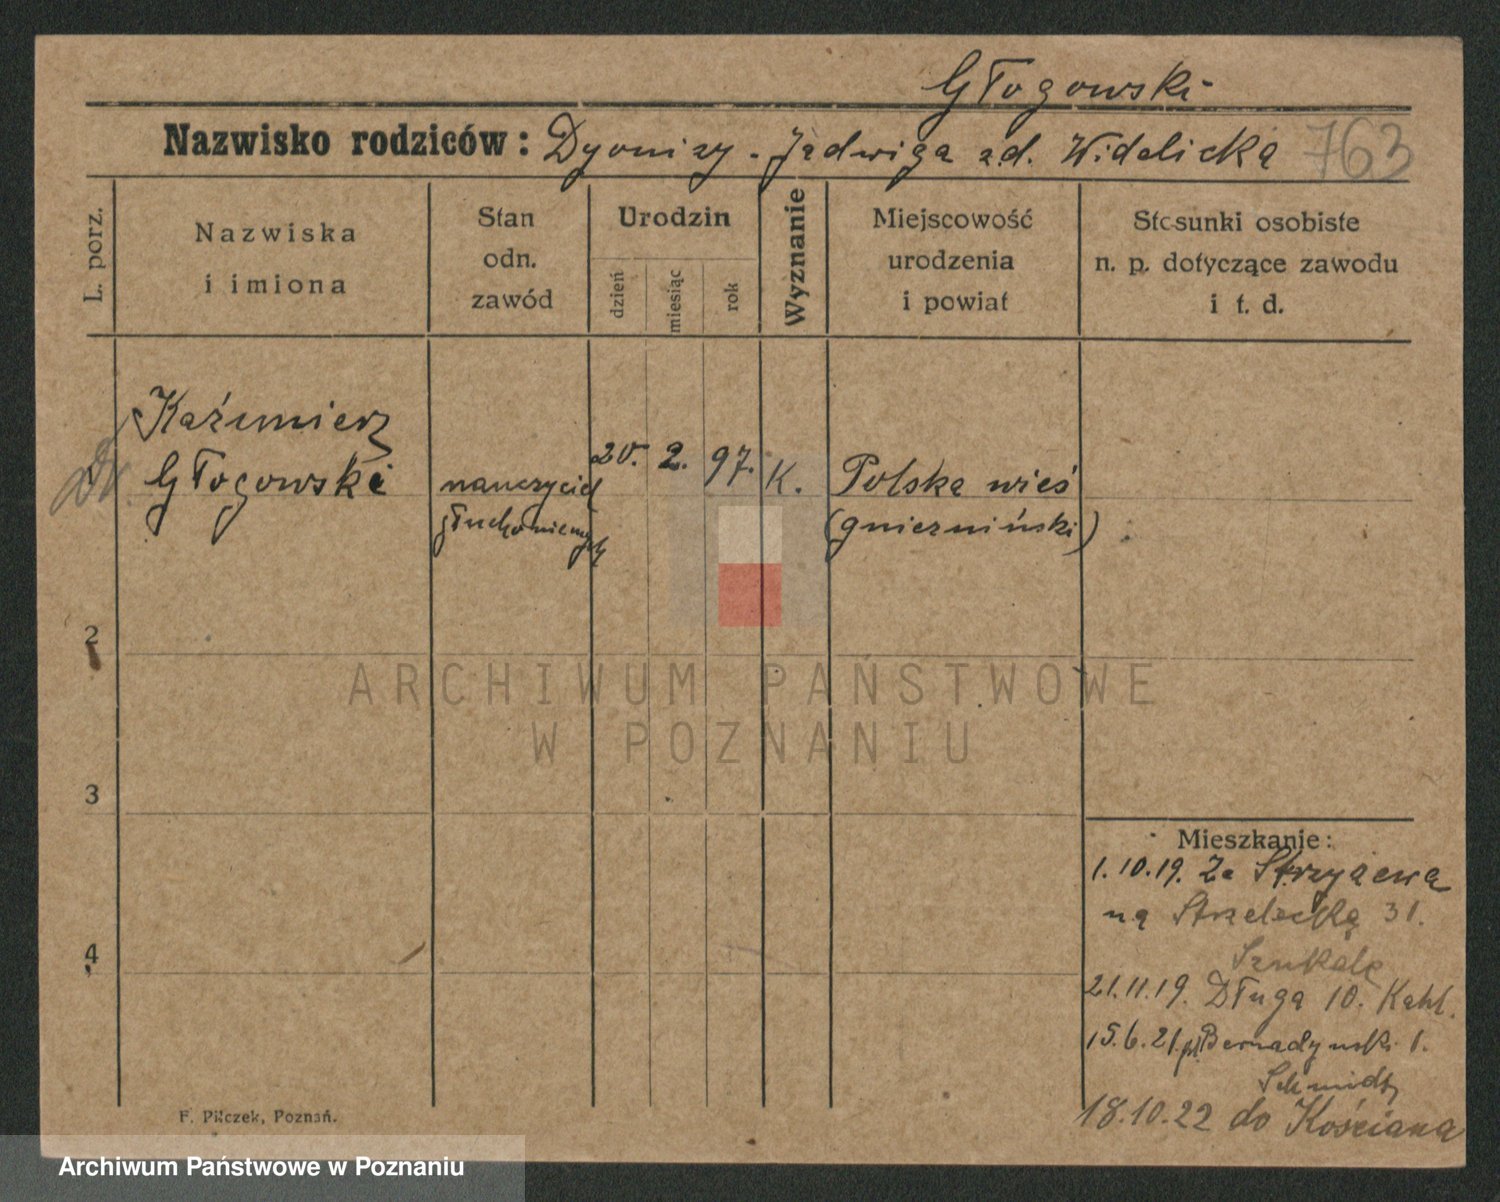 Głogowski
Nazwisko rodziców: Dyonizy - Jadwiga zd. Widelicka 763
L. porz.
Nazwiska
i imiona
Stan
odn.
zawód
Urodzin
dzień
miesiąc
rok
Wyznanie
Miejscowość
urodzenia
i powiat
Stosunki osobiste
n. p. dotyczące zawodu
i t. d.
Kaźimierz
Głogowski
nauczyciel
głuchoniemych
20. 2. 97.
K.
Polska wieś
(gnieźniński)
2
3
4
ARCHIWUM PAŃSTWOWE
W POZNANIU
Mieszkanie:
1.10.19. Ze Strzyżewa
na Strzelecką 31.
Szukała
21.11.19. Długa 10. Kahl.
15.6.21. pl. Bernadynski 1.
Schmidt
18.10.22 do Kościana
F. Pilczek, Poznań.
Archiwum Państwowe w Poznaniu